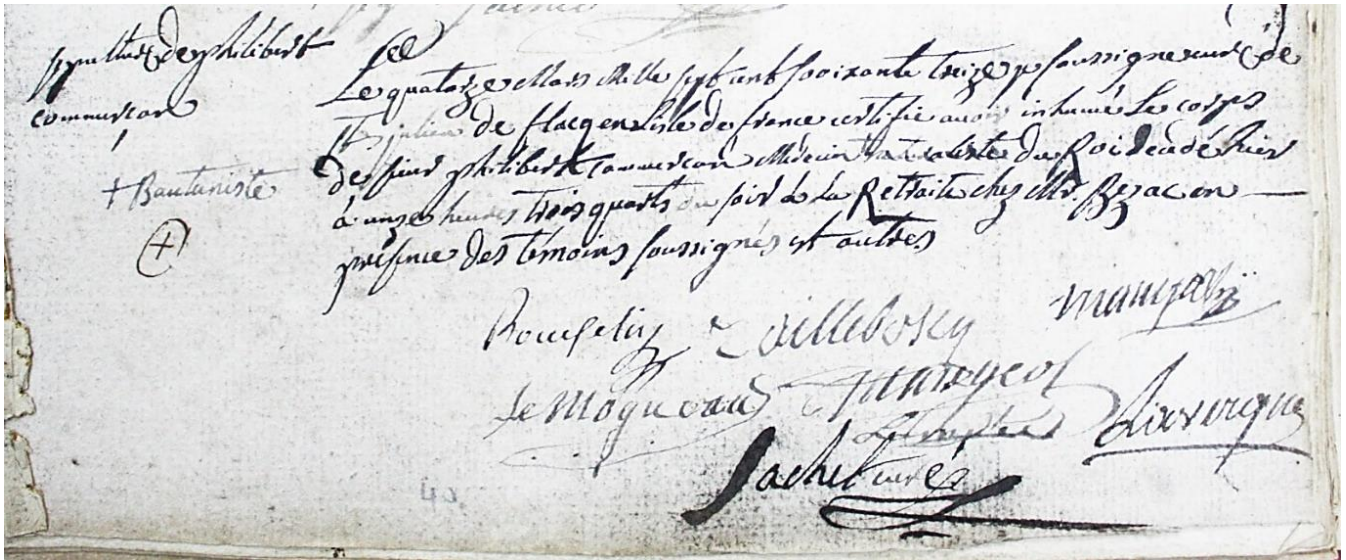 sepulture de philibert
commerçon
+ Bautaniste
Le quatorze Mars Mille sept cent soixante treize je soussigné curé de
St julien de flacq en Lisle de france certifie avoir inhumé Le corps
de sieur philibert Commercon Médecin Naturaliste du Roi décédé hier
à onze heures trois quarts du soir à la Retraite chez Mr. Bezac en
présence des témoins soussignés et autres
Bourgelin
Lemogueau
Mangeot
Lachel curé
40